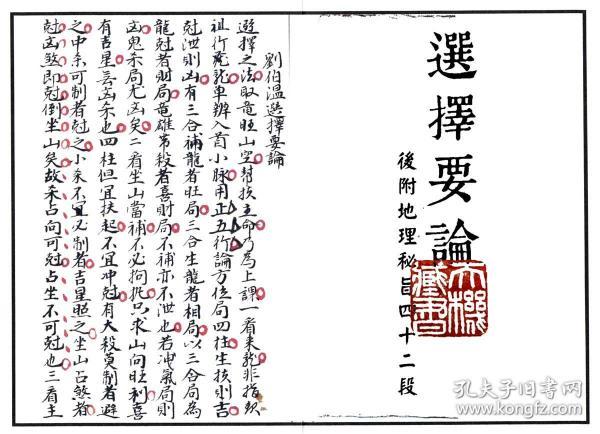 選擇要論
後附地理秘旨四十二段
天機藏書
劉伯温選擇要論
選擇之法取竜旺山空幫扶主命乃為上課一看來龍非指親
祖行龍車辦入首小脉用正五行論方位局四柱生扶則吉
尅泄則凶有三合補龍者旺局三合生龍者相局以三合局為
龍尅者財局竜雄帶殺者喜財局不補亦不泄也若冲氣局則
凶鬼杀局尤凶矣二看坐山當補不必拘執只求山向旺利喜
有吉星無凶杀也四柱但宜扶起不宜冲尅有大殺莫制者避
之中杀可制者尅之小杀不宜必制者吉星照之坐山占煞者
尅凶煞即尅倒坐山矣故杀占向可尅占坐不可尅也三看主
孔夫子旧书网
www.kongfz.com